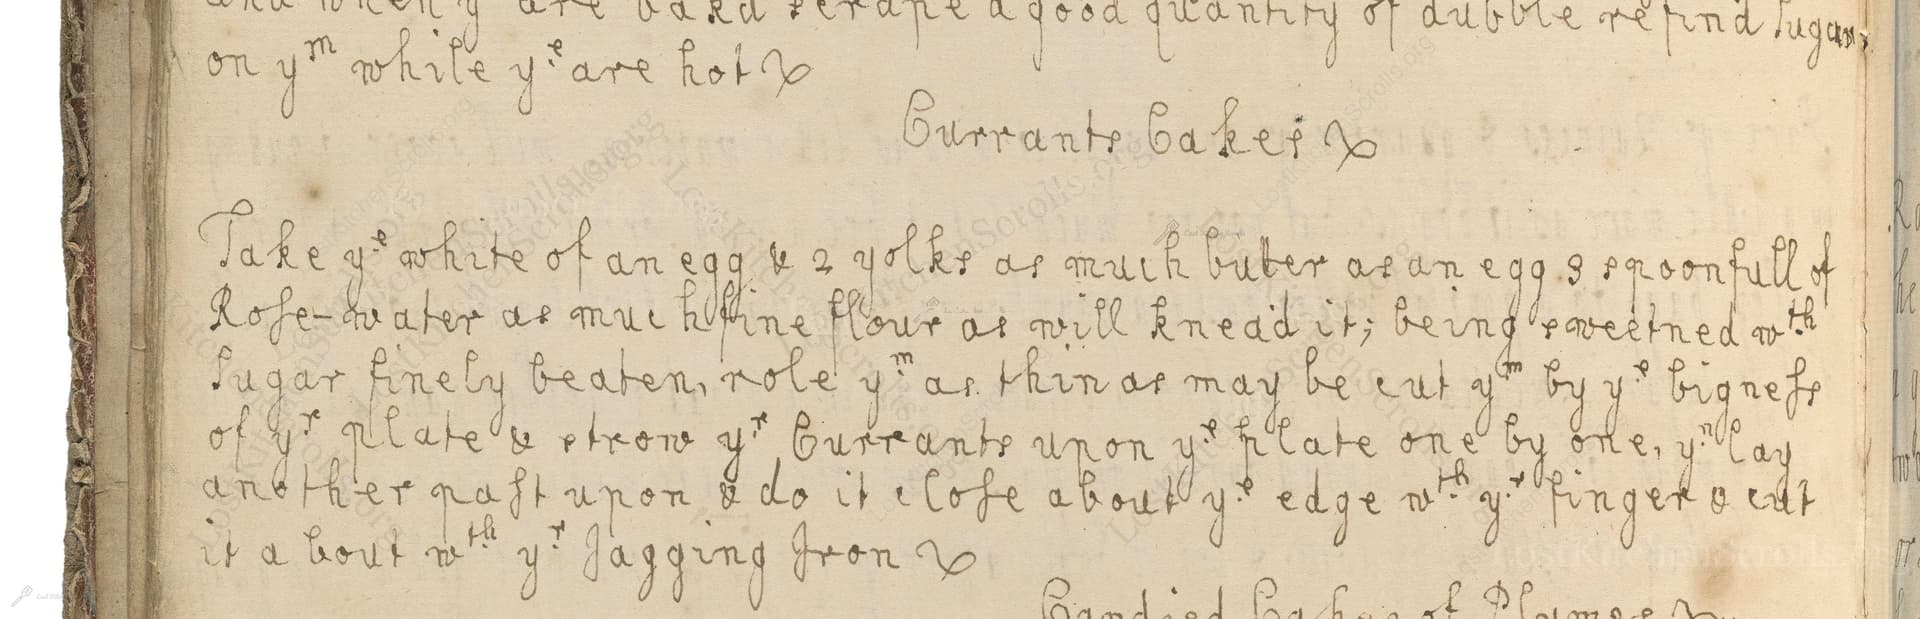 and when y are bakd scrape a good quantity of dubble refind Sugar
on yᵐ while y.ᵉ are hot
Currants Cakes
Take y.ᵉ white of an egg & 2 yolks as much butter as an egg 3 spoonfull of
Rose-water as much fine flour as will knead it; being sweetned wᵗʰ
Sugar finely beaten, role y.ᵐ as thin as may be cut yᵐ by y.ᵉ bigness
of y.ʳ plate & strow yʳ Currants upon y.ᵉ plate one by one, y.ⁿ lay
another past upon & do it close about y.ᵉ edge wᵗʰ y.ʳ finger & cut
it about wᵗʰ yʳ Jagging Iron
Candied Cakes of Plumes